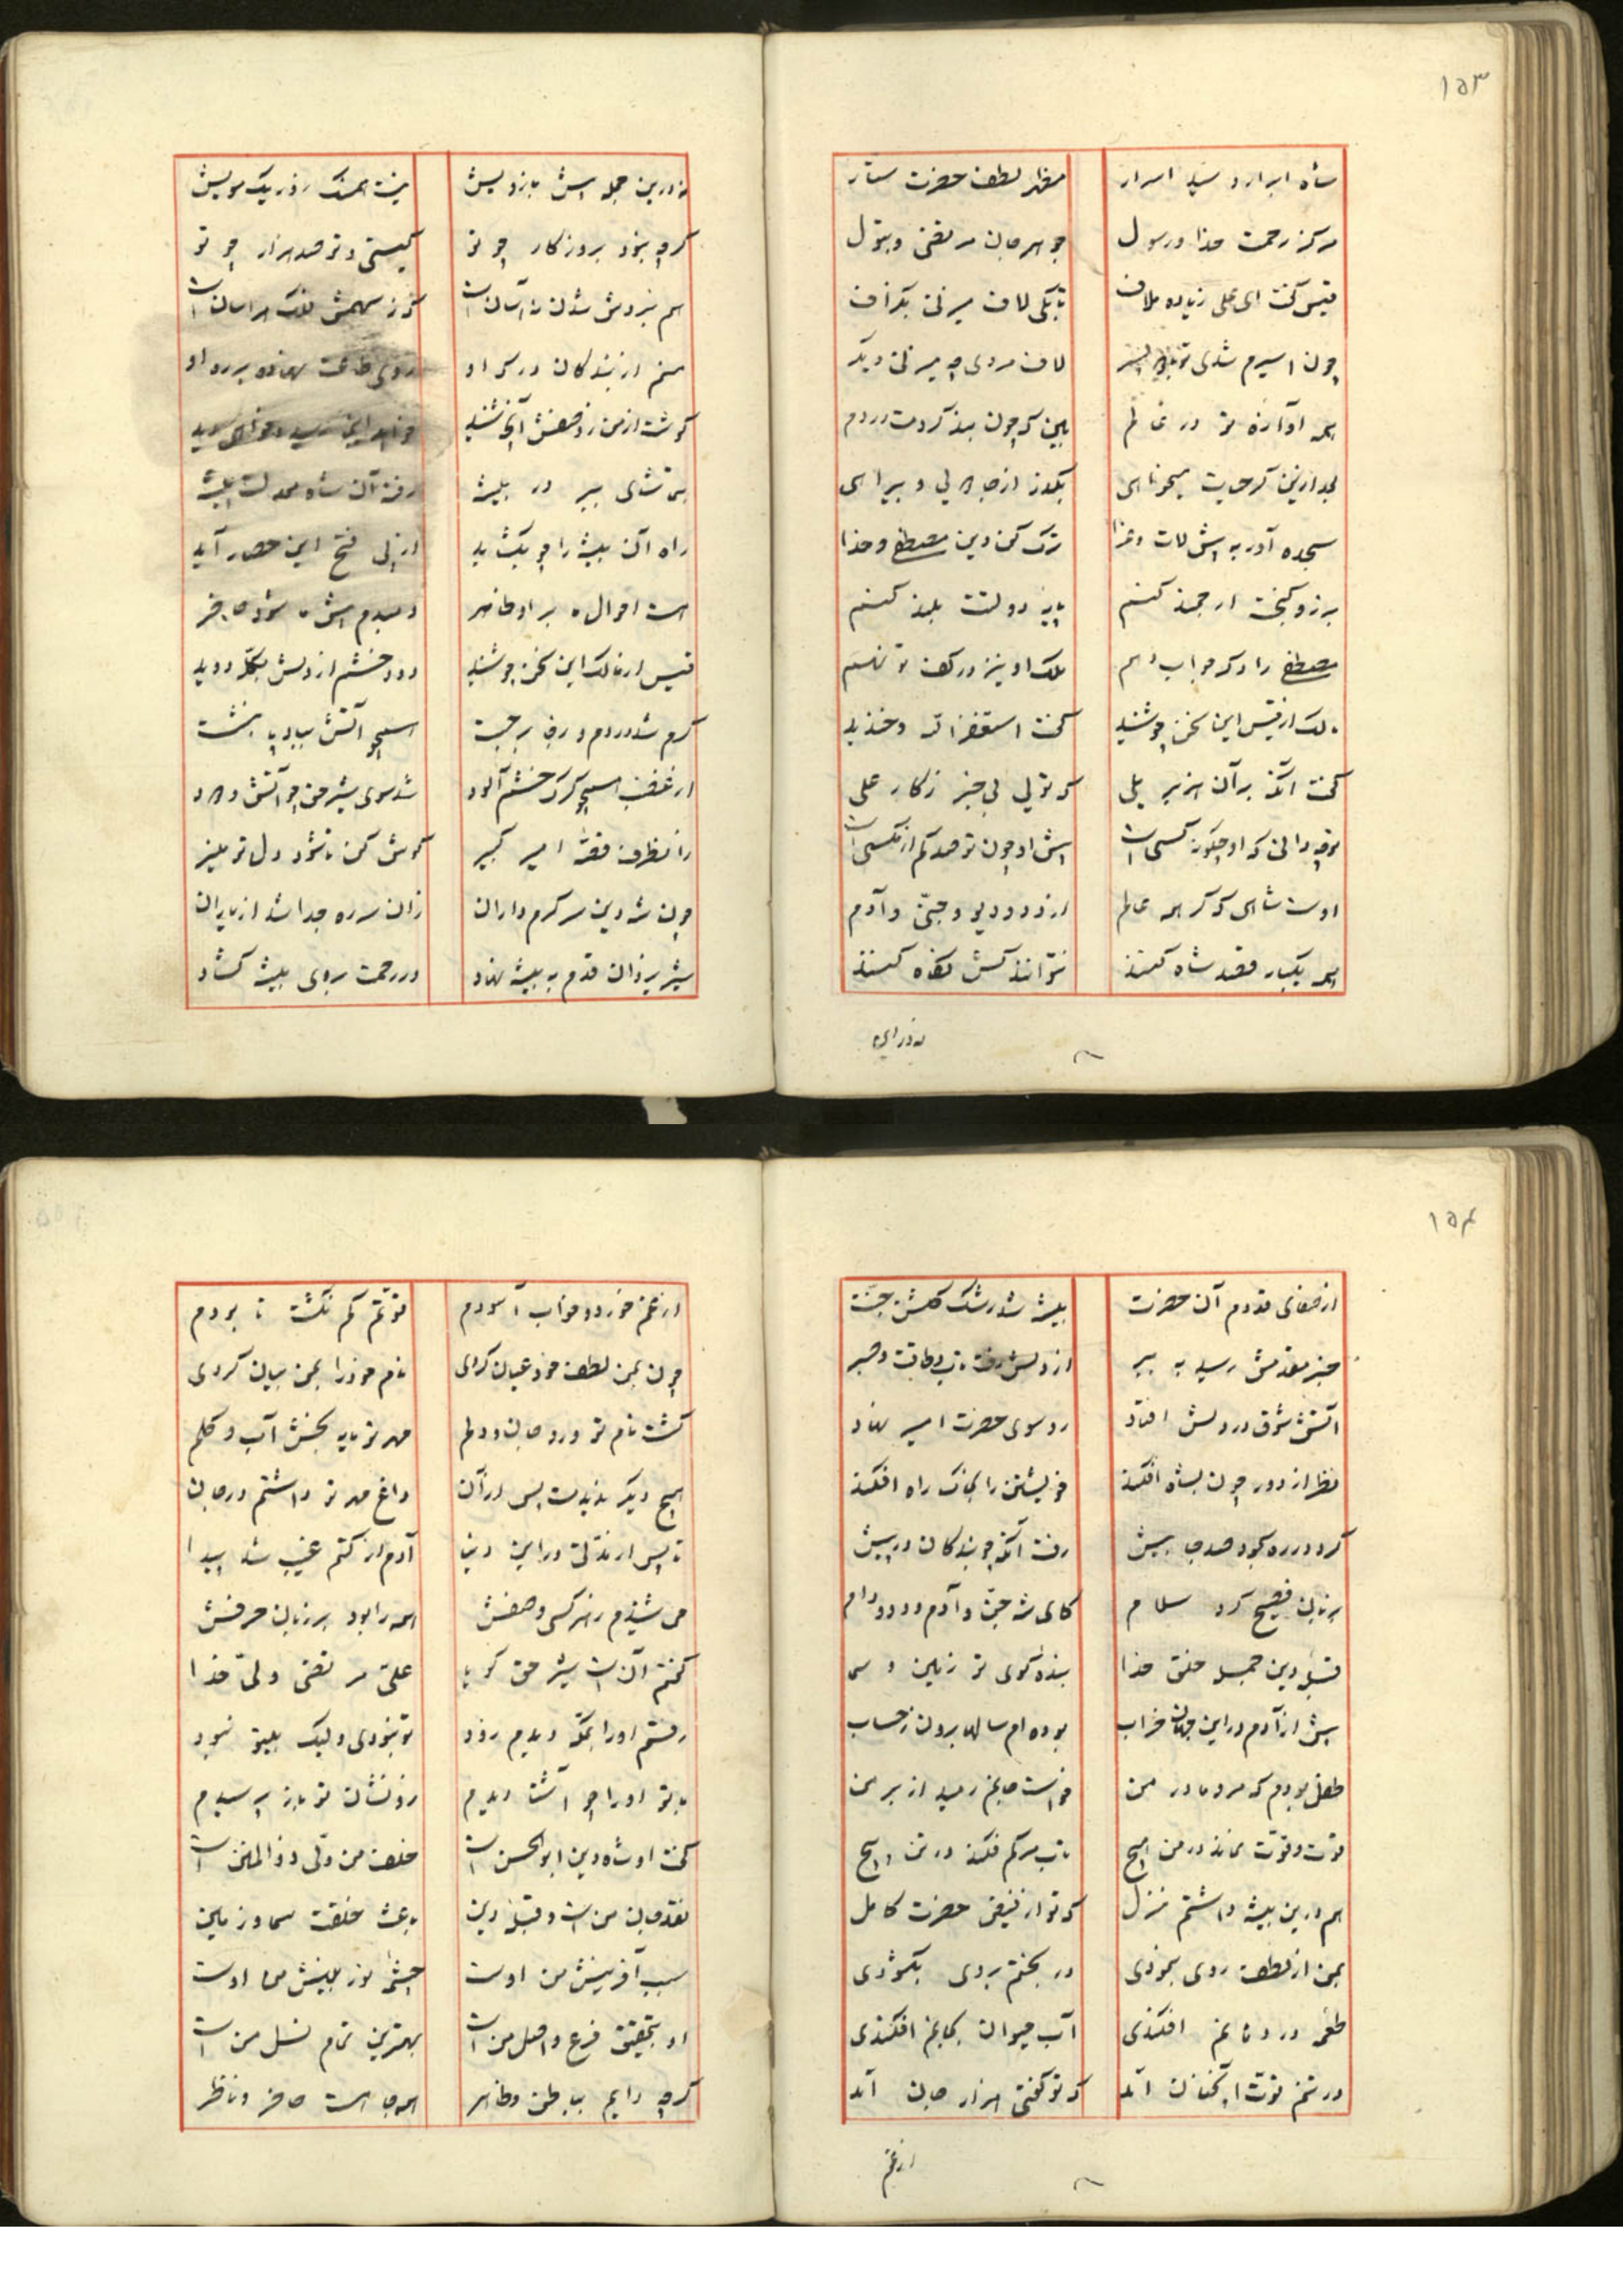 ۱۵۳
شاه ابرار و سید اسرار مظهر لطف حضرت ستار
مرکز رحمت خدا و رسول جوهر جان مرتضی و بتول
قیس گفت ای علی زیاده ملاف تا بکی لاف میزنی بکزاف
چون اسیرم شدی لاف مردی چه میزنی دیکر
همه آوازه تو در عالم ببین که چون بند کردمت در دم
بعد ازین بگذر از جاهلی و
سجده آور به پیش لات و عزا ترک کن دین مصطفی و خدا
برزو کنجت ارجمند کنم پایه دولتت بلند کنم
مصطفی را و که جواب دهم ملک او نیز در کف تو نهم
مالک از قیس این سخن چو شنید گفت استغفرالله و خندید
گفت آنکه بر آن هزبر یلی که تویی بی خبر ز کار علی
تو چه دانی که او چکونه کسی است پیش او چون تو صد کم از مکسی است
اوست شاهی که کر همه عالم از دد و دیو و جنی و آدم
همه یکبار قصد شاه کنند نتوانند کش نکاه کنند
نه در این
نه درین جمله اش بازو لیش نیست آهنک در یک مویش
کرچه بود بروزکار چو تو کیستی و تو صد هزار چو تو
هم نبردش شدن نه آسان است کز سهمش فلک هراسان است
منم از بندکان درکه او روی طاعت نهاده بر ره او
کوشت از من ز وصفش آنچه شنید خواهد این رسید و خواهی دید
در بیشه رفت آن شاه معدلت پیشه
راه آن بیشه را چو بکشاید از پی فتح این حصار آید
هست احوال ما بر او ظاهر دمبدم پیش ما شود حاضر
قیس از مالک این سخن چو شنید دود خشم از دلش بکله دوید
کرم شد در دم و ز جا برجست همچو آتش بباد پا بنشست
از غضب همچو کرک خشم آلود شد سوی شیر حق چو آتش و دود
زانطرف قصه امیر کبیر کوش کن تا شود دل تو منیر
چون شه دین سر کرم داران زان سر ره جدا شد از یاران
شیر یزدان قدم به بیشه نهاد در رحمت بروی بیشه کشاد
۱۵۴
از صفای قدوم آن حضرت بیشه شد رشک کلشن جنت
خبر مقدمش رسید به ببر از دلش رفت تاب و طاقت و صبر
آتش شوق در دلش افتاد رو سوی حضرت امیر نهاد
نظر از دور چون بشاه افکند خویشتن را بخاک راه افکند
کرد در ره سجود صد جا بیش رفت آنکه چو بندکان در پیش
بزبان فصیح کرد سلام کای شه جن و آدم و دد و دام
قبله دین جمله خلق خدا بنده کوی تو زمین و سما
پیش از آدم در این جهان خراب بوده ام سالها برون ز حساب
طفل بودم که مرد مادر من خواست جانم رمید از بر من
قوت و قوت نماند در من هیچ تاب مرکم فکند در تن پیچ
هم درین بیشه داشتم منزل که تو از فیض حضرت کامل
بمن از لطف روی بنمودی در بختم بروی بکشودی
طعمه در دهانم افکندی آب حیوان بکامم افکندی
در تنم قوت آنچنان آمد که تو کفتی هزار جان آمد
از غم
از غم خورد و خواب آسودم قوتم کم نکشت تا بودم
چون بمن لطف خود عیان کردی نام خود را بمن بیان کردی
کشت نام تو ورد جان و دلم مهر تو مایه بخش آب و کلم
هیچ دیکر ندیدمت پس از آن داغ مهر تو داشتم در جان
تا پس از مدتی در این دنیا آدم از کتم غیب شد پیدا
می شنیدم ز هر کسی وصفش همه را بود بر زبان حرفش
کفتم آن است شیر حق کویا علی مرتضی ولی خدا
رفتم او را بمکه دیدم زود تو نبودی ولیک بیتو نبود
با تو او را چو آشنا دیدم زو نشان تو باز پرسیدم
کفت او شاه دین ابوالحسن است خلف من ولی ذوالمنن است
نقد جان من است و قبله دین باعث خلقت سما و زمین
سبب آفرینش من اوست چشم نور بینش ما اوست
او بتحقیق فرع و اصل من است بهترین تمام نسل من است
کرچه دایم بباطن و ظاهر همه جا هست حاضر و ناظر